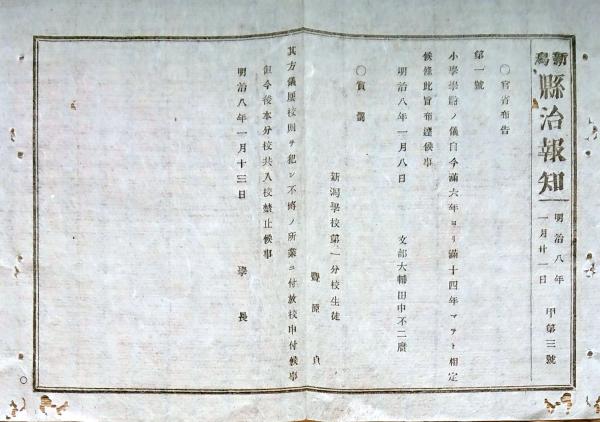 新潟縣治報知
明治八年
一月廿一日
甲第三號
○官省布告
第一號
小學學齡ノ儀自今滿六年ヨリ滿十四年マテト相定
候條此旨布達候事
明治八年一月八日
文部大輔田中不二麿
○賞罰
新潟學校第一分校生徒
原貞
其方儀屢校則ヲ犯シ不將ノ所業ニ付放校申付候事
但今後本分校共入校禁止候事
明治八年一月十三日
學長